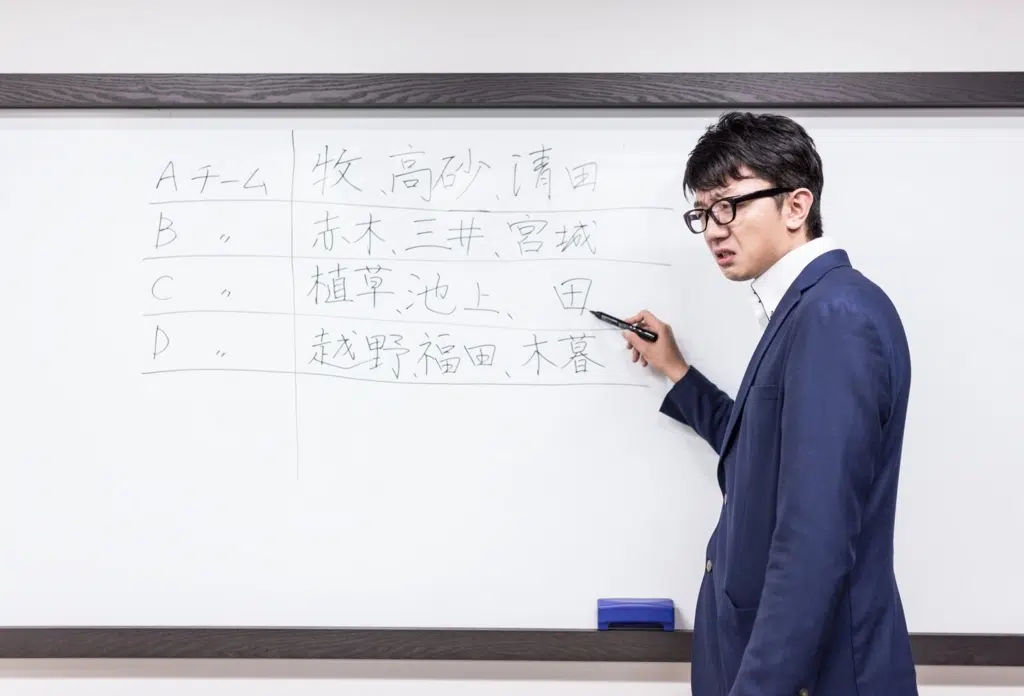 Aチーム 牧、高砂、清田
B 〃 赤木、三井、宮城
C 〃 植草、池上、 田
D 〃 越野、福田、木暮